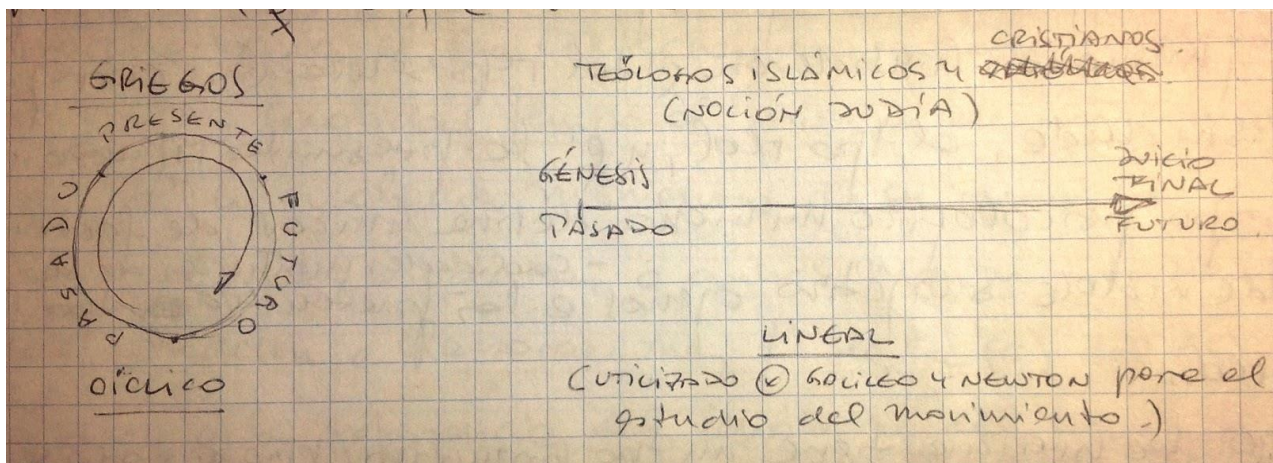 GRIEGOS
PRESENTE
PASADO
FUTURO
CÍCLICO
CRISTIANOS.
TEÓLOGOS ISLÁMICOS Y
(NOCIÓN JUDÍA)
GÉNESIS
PASADO
JUICIO
FINAL
FUTURO.
LINEAL
(UTILIZADO GALILEO Y NEWTON para el
estudio del movimiento.)